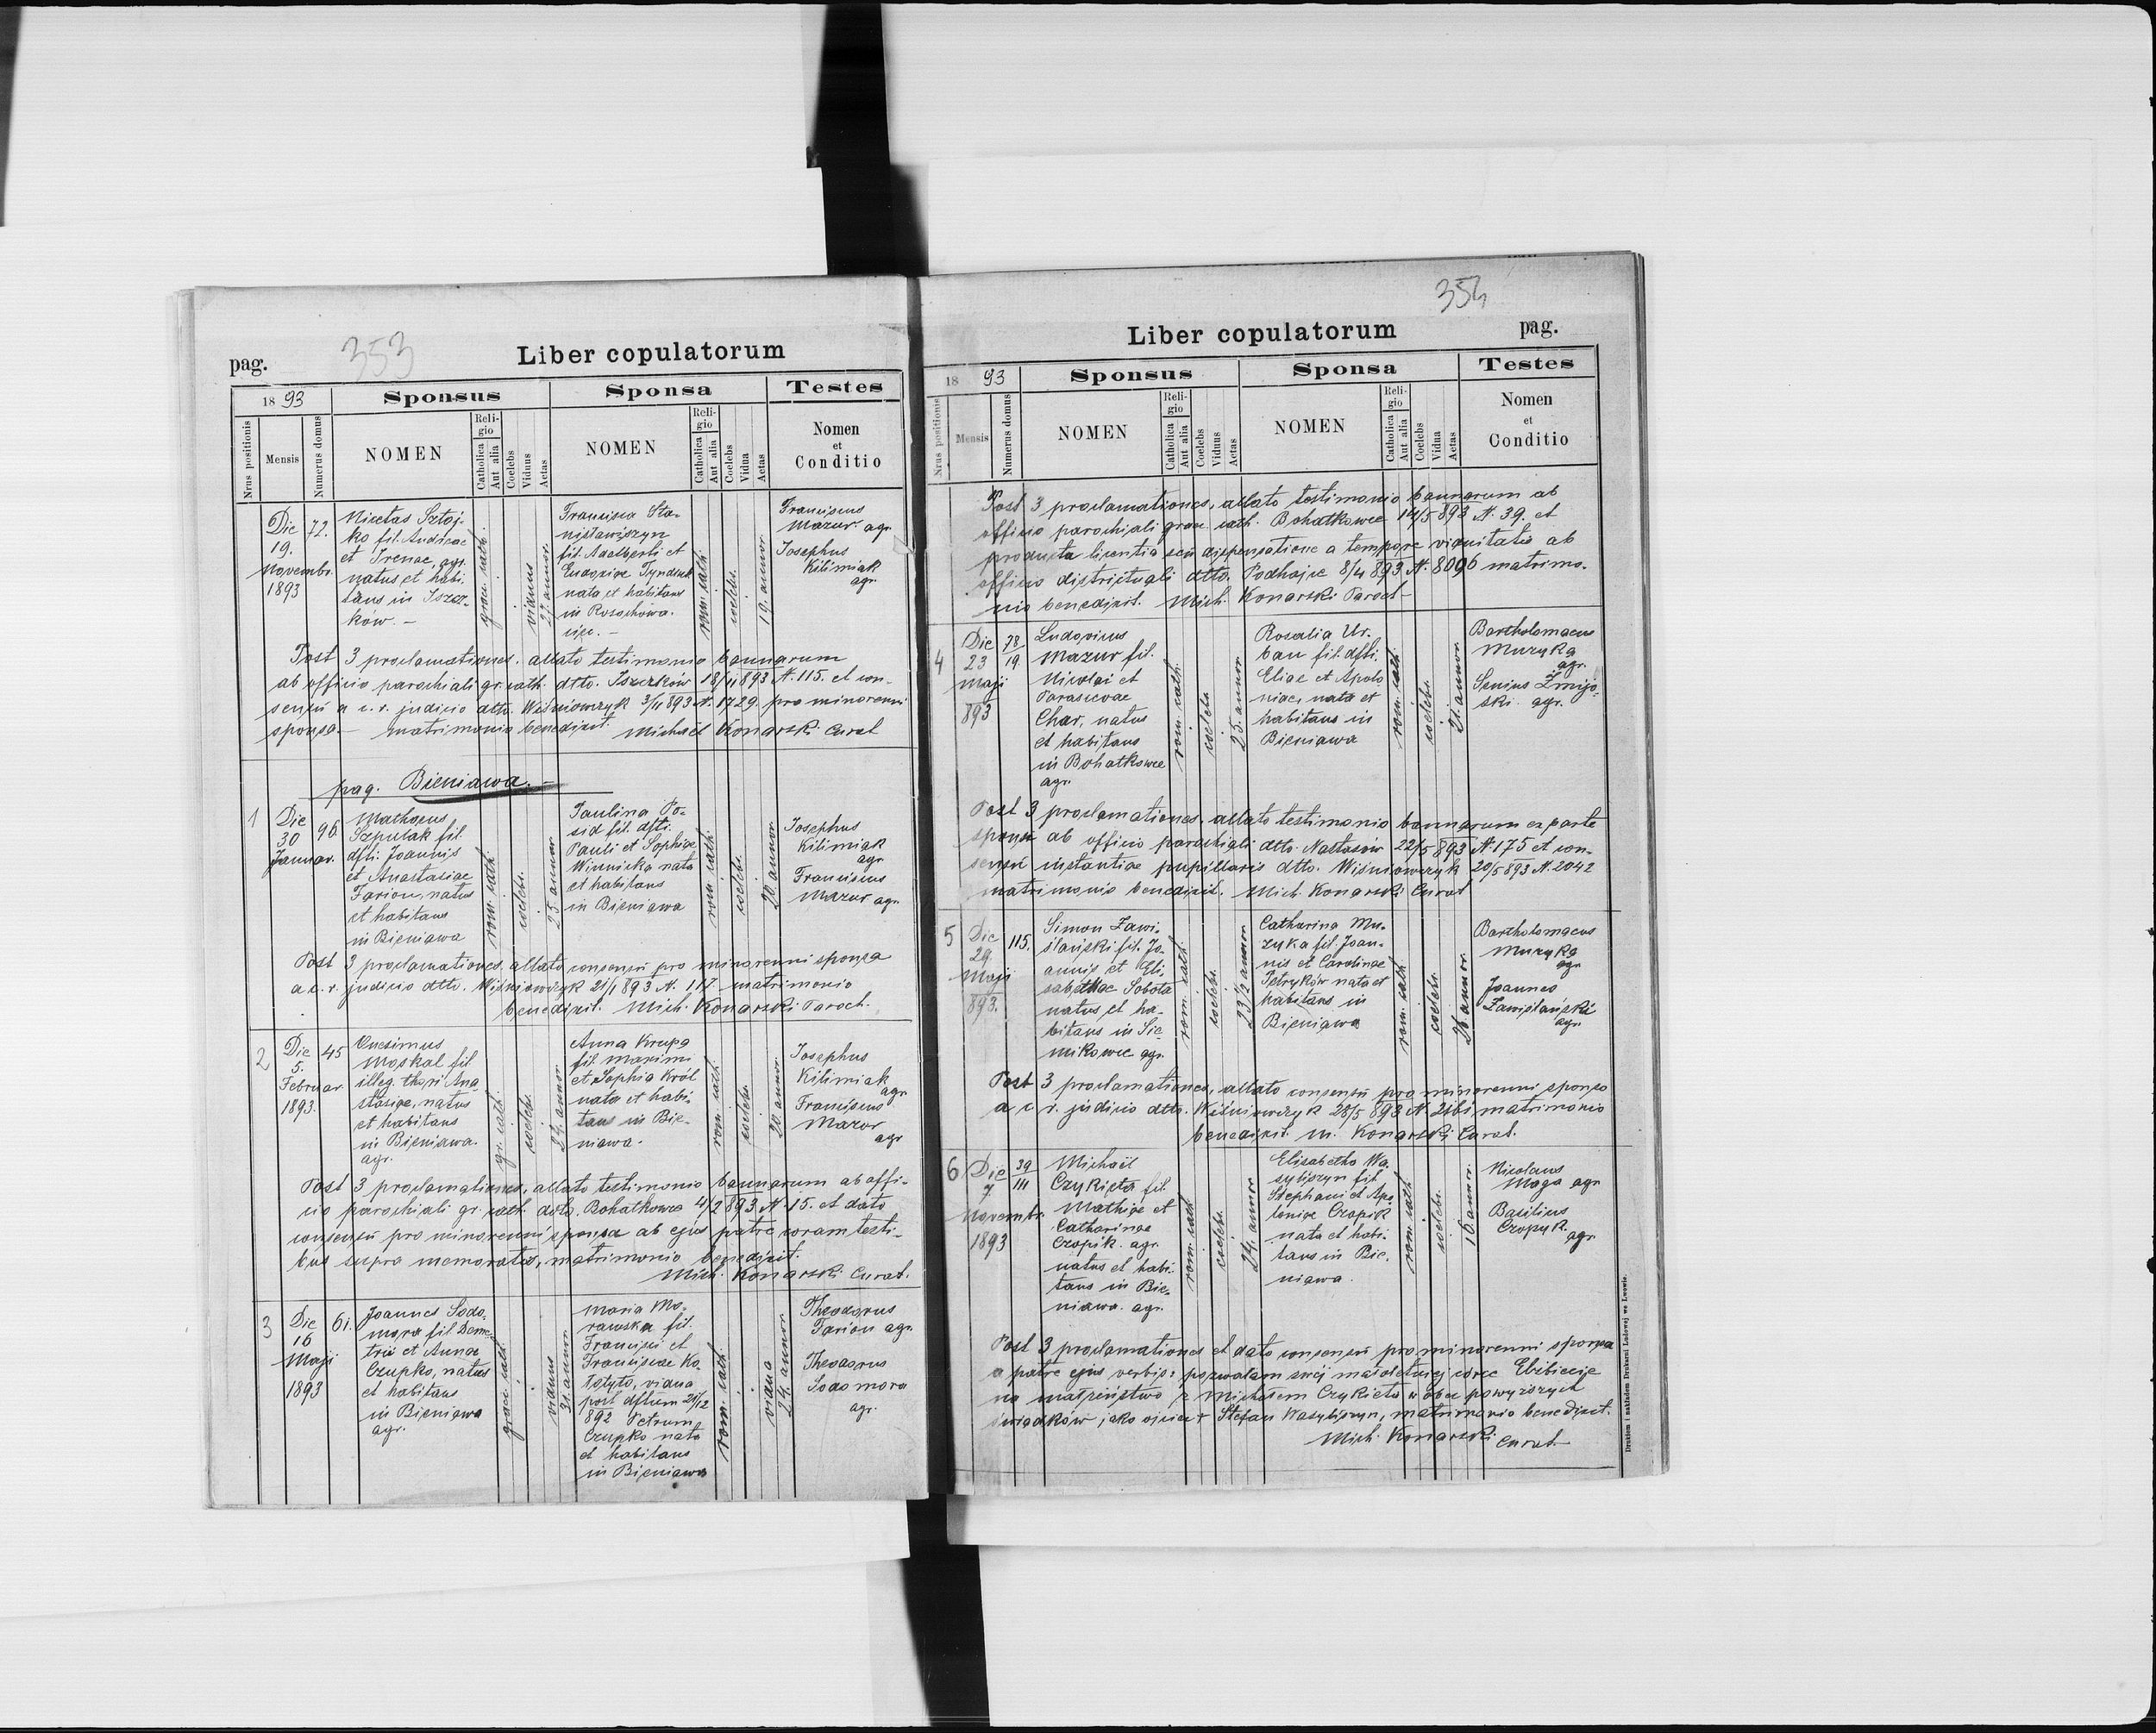 353
pag.
Liber copulatorum
18 93
Sponsus
Sponsa
Testes
Nrus positionis
Mensis
Numerus domus
NOMEN
Religio
Catholica
Aut alia
Coelebs
Viduus
Aetas
NOMEN
Religio
Catholica
Aut alia
Coelebs
Vidua
Aetas
Nomen
et
Conditio
Die
19.
Novembr.
1893
72.
Nicetas Sztoj-
ko fil. Andreae
et Irenae, agr.
natus et habi-
tans in Iszcz-
ków. -
graec. cath.
viduus
27. annor.
Francisca Sta-
nisławiszyn
fil. Adalberti et
Eudoxiae Tyndiuk
nata et habitans
in Rosochowa-
ciec. -
rom. cath.
coelebs.
19. annor.
Franciscus
Mazur agr.
Josephus
Kilimiak
agr.
Post 3 proclamationes, allato testimonio bannorum
ab officio parochiali gr. cath. dtto. Iszczków 18/11 893 N. 115. et con-
sensu a c. r. judicio dtto. Wiśniowczyk 3/11 893 N. 1729. pro minorenni
sponsa. - matrimonio benedixit. Michael Konarski Curat
pag. Bieniawa. -
1
Die
30
Januar.
96.
Mathaeus
Szpulak fil.
dfti. Joannis
et Anastasiae
Farion, natus
et habitans
in Bieniawa
rom. cath.
coelebs.
25. annor.
Paulina Po-
sid fil. dfti.
Pauli et Sophiae
Winnicka nata
et habitans
in Bieniawa
rom. cath.
coelebs.
20. annor.
Josephus
Kilimiak
agr
Franciscus
Mazur agr.
Post 3 proclamationes, allato consensu pro minorenni sponsa
a c. r. judicio dtto. Wiśniowczyk 21/1 893 N. 117. matrimonio
benedixit. Mich. Konarski Paroch.
2
Die
5.
Februar
1893.
45
Onesimus
Moskal fil.
illeg. thori Ana-
stasiae, natus
et habitans
in Bieniawa.
agr.
gr. cath.
coelebs.
24. annor.
Anna Krupa
fil. Maximi
et Sophia Król
nata et habi-
tans in Bie-
niawa.
rom. cath.
coelebs.
20 annor.
Josephus
Kilimiak
agr
Franciscus
Mazur
agr
Post 3 proclamationes, allato testimonio bannorum ab offi-
cio parochiali gr. cath. dtto. Bohatkowce 4/2 893 N. 15. et dato
consensu pro minorenni sponsa ab ejus patre coram testi-
bus supra memoratis, matrimonio benedixit.
Mich. Konarski Curat.
3
Die
16
Maji
1893
61.
Joannes Sodo-
mora fil. Deme-
trii et Annae
Czupko, natus
et habitans
in Bieniawa
agr.
graec. cath.
viduus
31. annor
Maria Mo-
rawska fil.
Francisci et
Franciscae Ko-
łotyło, vidua
post dftum 21/12
892 Petrum
Czupko nata
et habitans
in Bieniawa
rom. cath.
vidua
24. annor
Theodorus
Farion agr.
Theodorus
Sodomora
agr.
354
Liber copulatorum
pag.
18 93
Sponsus
Sponsa
Testes
Nrus positionis
Mensis
Numerus domus
NOMEN
Religio
Catholica
Aut alia
Coelebs
Viduus
Aetas
NOMEN
Religio
Catholica
Aut alia
Coelebs
Vidua
Aetas
Nomen
et
Conditio
Post 3 proclamationes, allato testimonio bannorum ab
officio parochiali graec. cath. Bohatkowce 14/5 893 N. 39. et
producta licentia seu dispensatione a tempore viduitatis ab
officio districtuali dtto. Podhajce 8/4 893 N. 8096 matrimo-
nio benedixit. Mich. Konarski Paroch
4
Die
23
Maji
893
78
19.
Ludovicus
Mazur fil.
Nicolai et
Parascevae
Char, natus
et habitans
in Bohatkowce
agr.
rom. cath.
coelebs
25. annor.
Rosalia Ur-
ban fil. dfti.
Eliae et Apolo-
niae, nata et
habitans in
Bieniawa
rom. cath.
coelebs.
21. annor.
Bartholomaeus
Muzyka
agr.
Senius Żmijo-
ski agr.
Post 3 proclamationes, allato testimonio bannorum ex parte
sponsi ab officio parochiali dtto. Nastasów 22/5 893 N. 175 et con-
sensu instantiae pupillaris dtto. Wiśniowczyk 20/5 893 N. 2042
matrimonio benedixit. Mich. Konarski Curat
5
Die
29.
Maji
893.
115.
Simon Zawi-
ślański fil. Jo-
annis et Eli-
sabethae Sobota
natus et ha-
bitans in Sie-
mikowce agr.
rom. cath
coelebs.
23 1/2 annor
Catharina Mu-
zyka fil. Joan-
nis et Carolinae
Petryków nata et
habitans in
Bieniawa
rom. cath.
coelebs.
26. annor.
Bartholomaeus
Muzyka
agr
Joannes
Zawiślański
agr.
Post 3 proclamationes, allato consensu pro minorenni sponso
a c. r. judicio dtto. Wiśniowczyk 28/5 893 N. 2161 matrimonio
benedixit. M. Konarski Curat.
6
Die
7.
Novembr.
1893
39
111
Michaël
Czykieta fil.
Mathiae et
Catharinae
Czopik. agr.
natus et habi-
tans in Bie-
niawa. agr.
rom. cath
coelebs.
24. annor
Elisabetha Wa-
syliszyn fil.
Stephani et Apo-
loniae Czopik
nata et habi-
tans in Bie-
niawa.
rom. cath
coelebs.
16 annor.
Nicolaus
Maga agr
Basilius
Czopyk.
agr
Post 3 proclamationes et dato consensu pro minorenni sponsa
a patre ejus verbis: pozwalam swej małoletniej córce Elżbiecie
na małżeństwo z Michałem Czykietą w obec powyższych
świadków jako ojciec + Stefan Wasyliszyn, matrimonio benedixit.
Mich. Konarski Curat
Drukiem i nakładem Drukarni Ludowej we Lwowie.